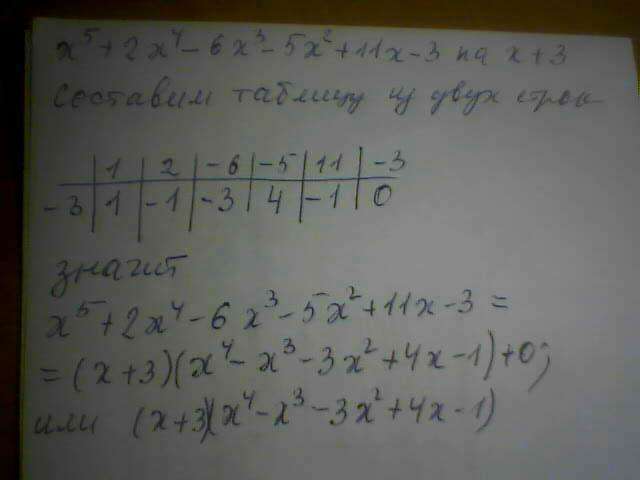 x⁵+2x⁴-6x³-5x²+11x-3 на x+3
Составим таблицу из двух строк
1 | 2 | -6 | -5 | 11 | -3
-3 | 1 | -1 | -3 | 4 | -1 | 0
значит
x⁵+2x⁴-6x³-5x²+11x-3=
=(x+3)(x⁴-x³-3x²+4x-1)+0;
или (x+3)(x⁴-x³-3x²+4x-1)